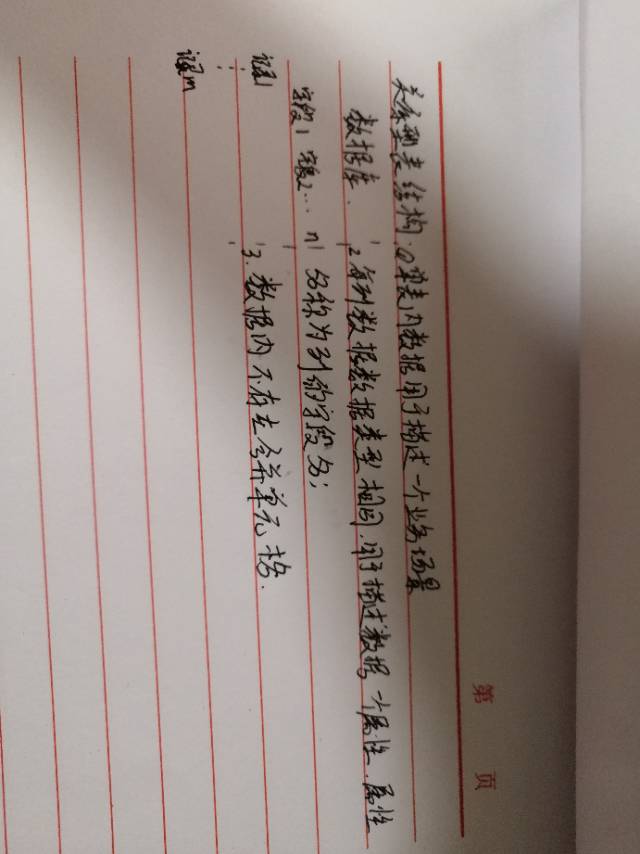 第 页
关系型表结构.①单表内数据用于描述一个业务场景
数据库. 2每列数据数据类型相同.用于描述数据一个属性.属性
字段1 字段2... n 名称为列的字段名;
记录1 3.数据内不存在合并单元格.
⋮
记录m